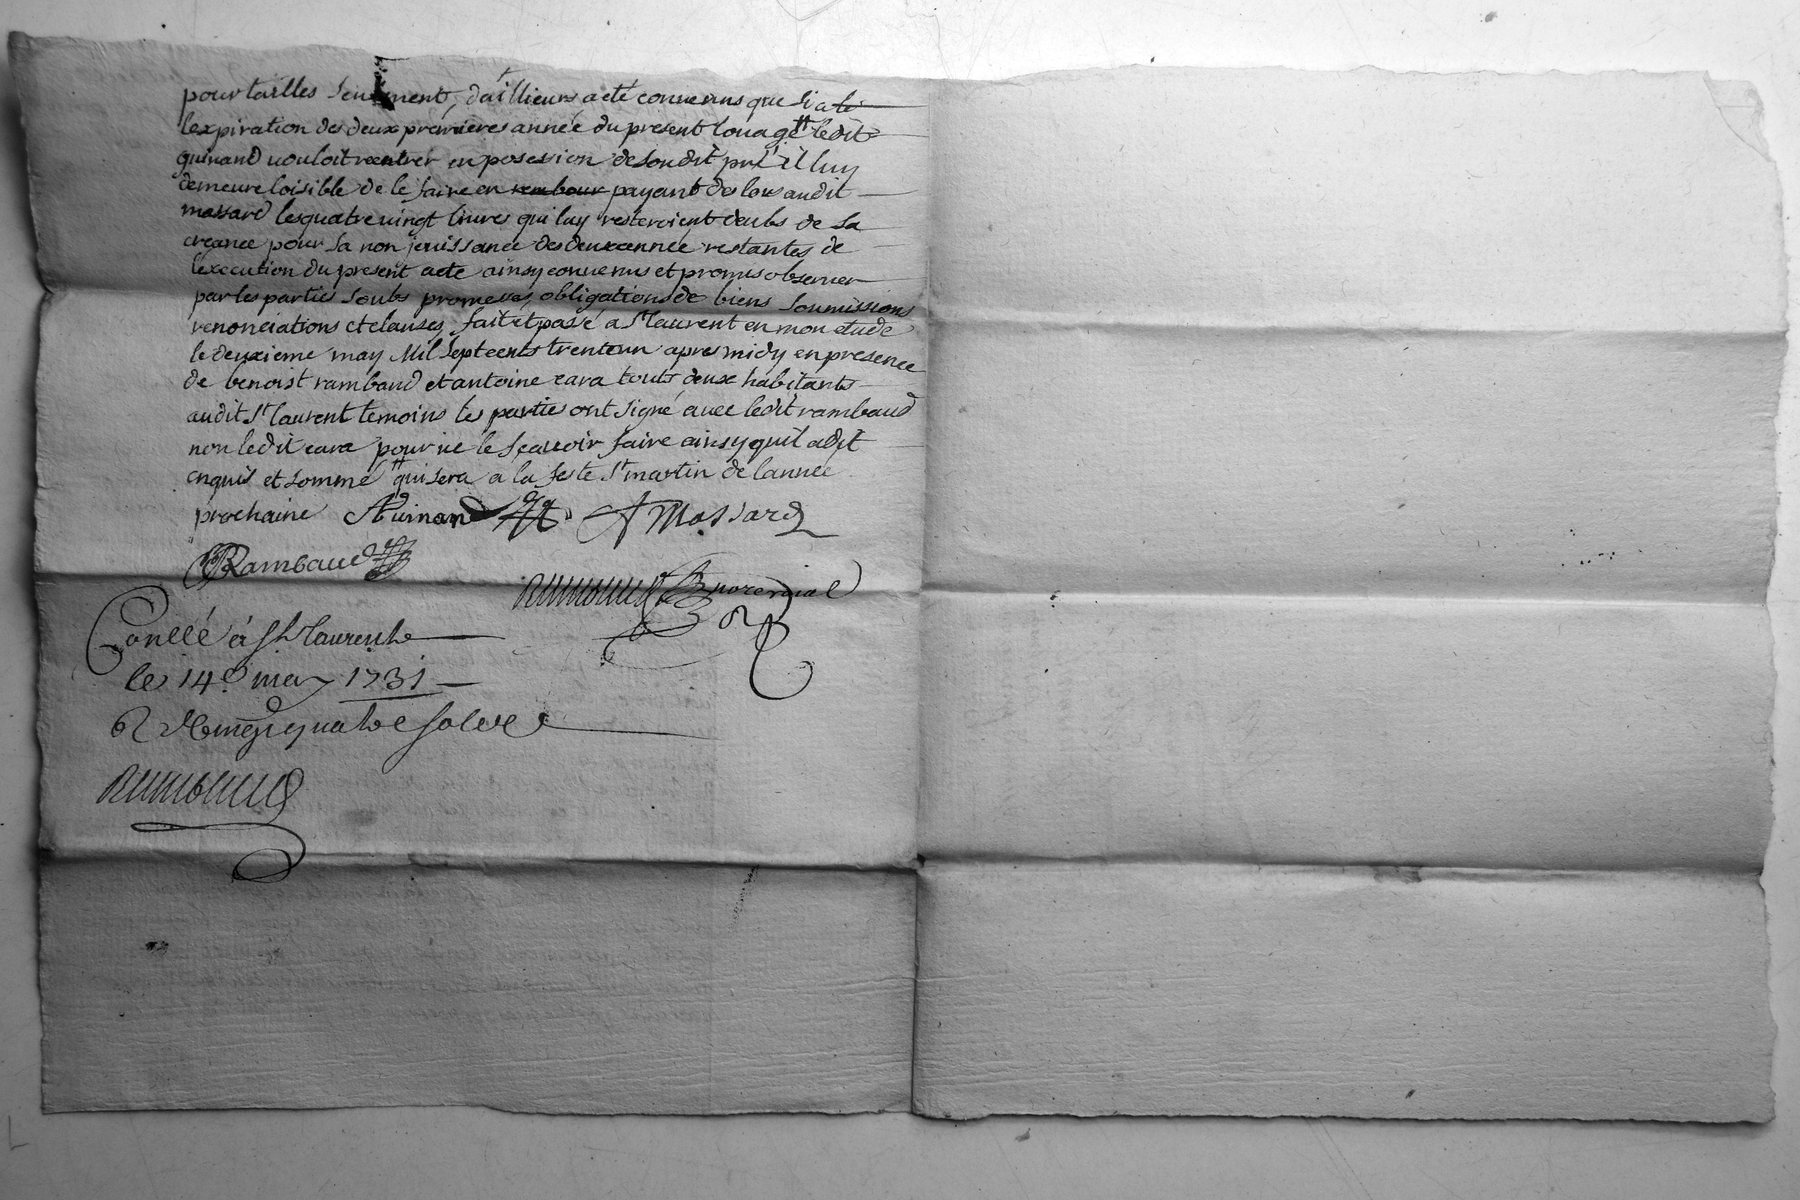 pour tailles seulement, d'aillieurs a eté convenus que si a le
lexpiration des deux premieres année du present louage # ledit
guinand uouloit rentrer en posession de sondit pré il luy
demeure loisible de le faire en rembour payant des lors audit
massard les quatre uingt liures qui luy resteroient deubs de sa
creance pour sa non jouissance des deux année restantes de
lexecution du present acte ainsy conuenus et promis obseruer
par les parties soubs promeses, obligations de biens soumissions
renonciations et clauses, fait et passé a St laurent en mon etude
le deuxieme may Mil sept cents trente un apres midy en presence
de benoist rambaud et antoine cara touts deux habitants
audit St laurent temoins les parties ont signé auec ledit rambaud
non ledit cara pour ne le sçauoir faire ainsy quil a dit
enquis et sommé # qui sera a la feste St martin de lannee
prochaine Guinand A Massard
Rambaud
no.re royal
Conllé à St Laurent
le 14e may 1731
R uingt quatre sols